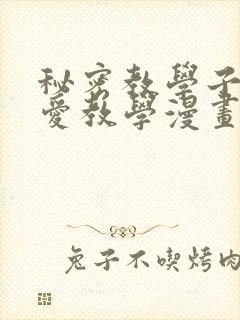 秘密教學子
愛教學漫畫
兔子不喫烤肉